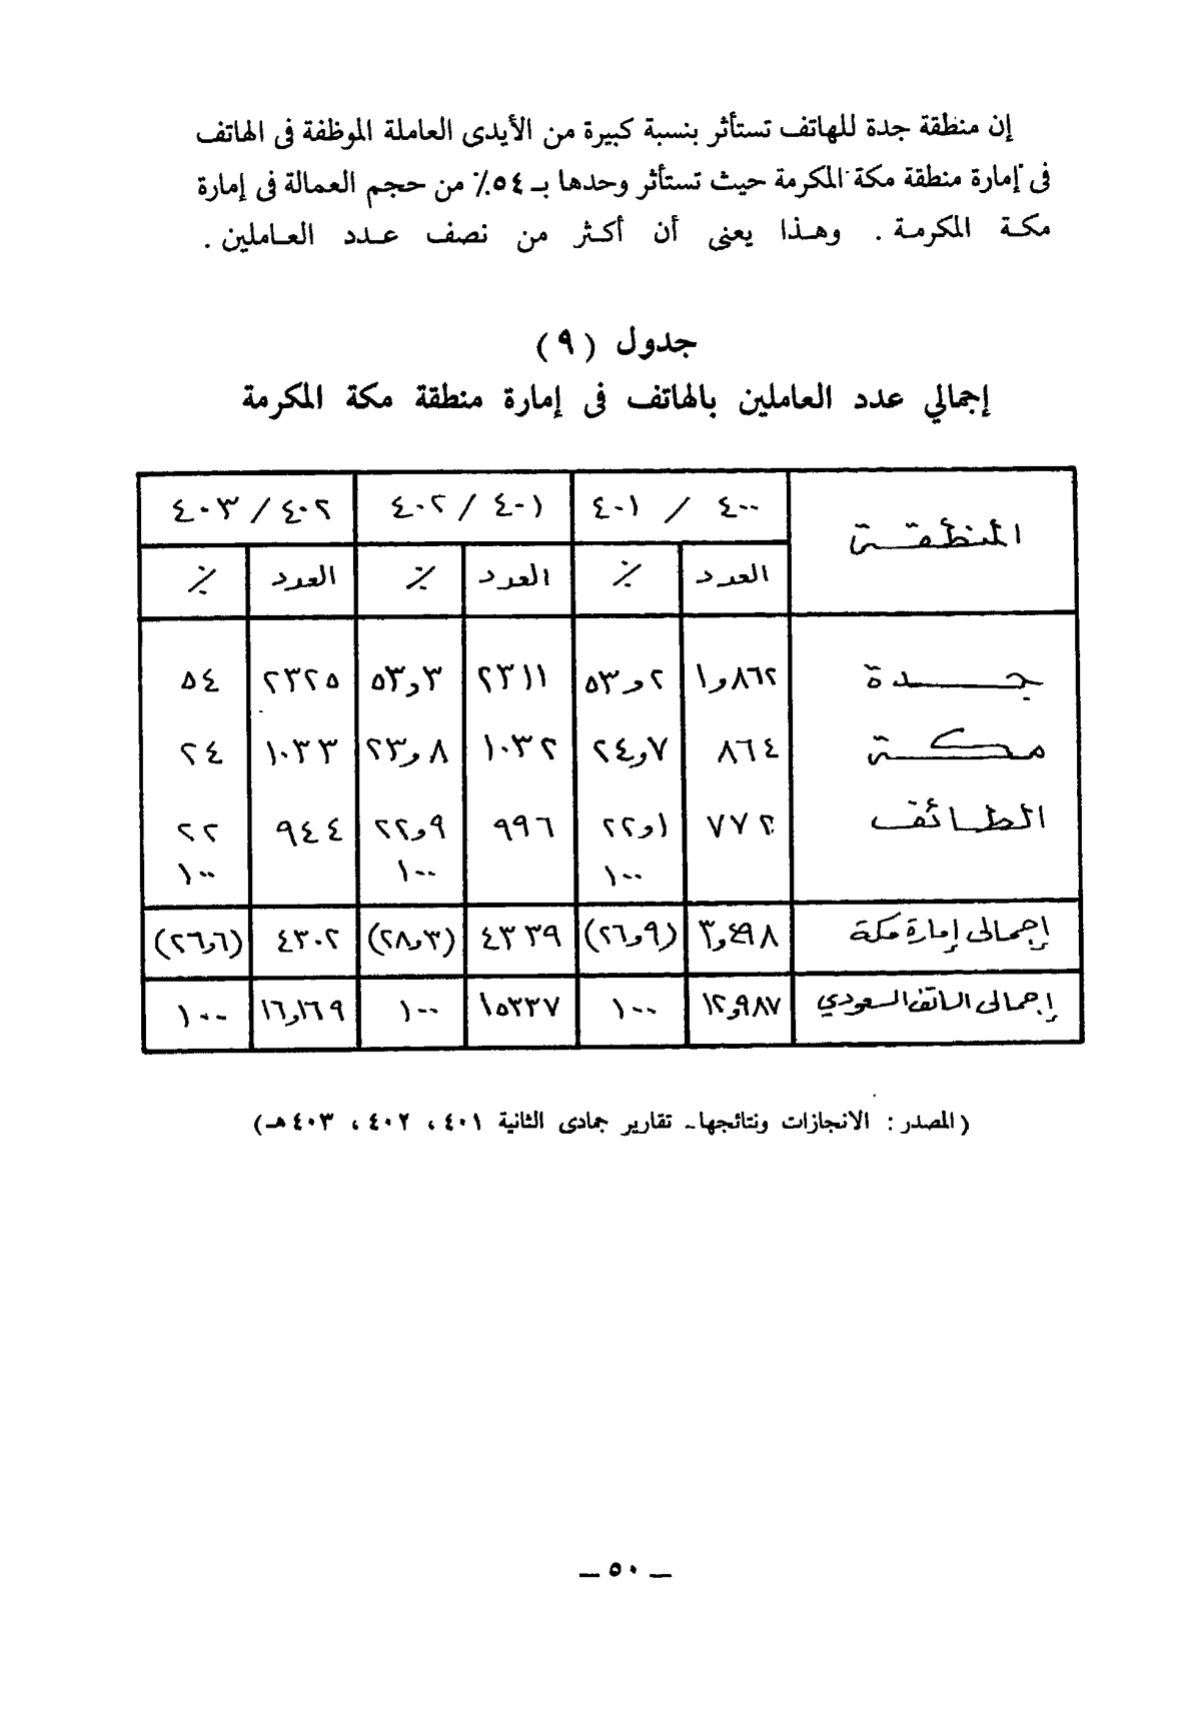 إن منطقة جدة للهاتف تستأثر بنسبة كبيرة من الأيدى العاملة الموظفة فى الهاتف
فى إمارة منطقة مكة المكرمة حيث تستأثر وحدها بـ ٥٤٪ من حجم العمالة فى إمارة
مكـة المكرمـة . وهـذا يعنى أن أكـثر من نصف عـدد العـاملين .
جدول ( ٩ )
إجمالي عدد العاملين بالهاتف فى إمارة منطقة مكة المكرمة
المنطقـة ٤٠٠ / ٤٠١ ٤٠١ / ٤٠٢ ٤٠٢ / ٤٠٣
العدد ٪ العدد ٪ العدد ٪
جـدة ١٫٨٦٢ ٥٣٫٢ ٢٣١١ ٥٣٫٣ ٢٣٢٥ ٥٤
مكـة ٨٦٤ ٢٤٫٧ ١٠٣٢ ٢٣٫٨ ١٠٣٣ ٢٤
الطـائف ٧٧٢ ٢٢٫١ ٩٩٦ ٢٢٫٩ ٩٤٤ ٢٢
١٠٠ ١٠٠ ١٠٠
إجمالى إمارة مكة ٣٫٤٩٨ (٢٦٫٩) ٤٣٣٩ (٢٨٫٣) ٤٣٠٢ (٢٦٫٦)
إجمالى الهاتف السعودي ١٢٫٩٨٧ ١٠٠ ١٥٣٣٧ ١٠٠ ١٦٫١٦٩ ١٠٠
(المصدر : الانجازات ونتائجها ـ تقارير جمادى الثانية ٤٠١ ، ٤٠٢ ، ٤٠٣هـ)
ــ ٥٠ ــ